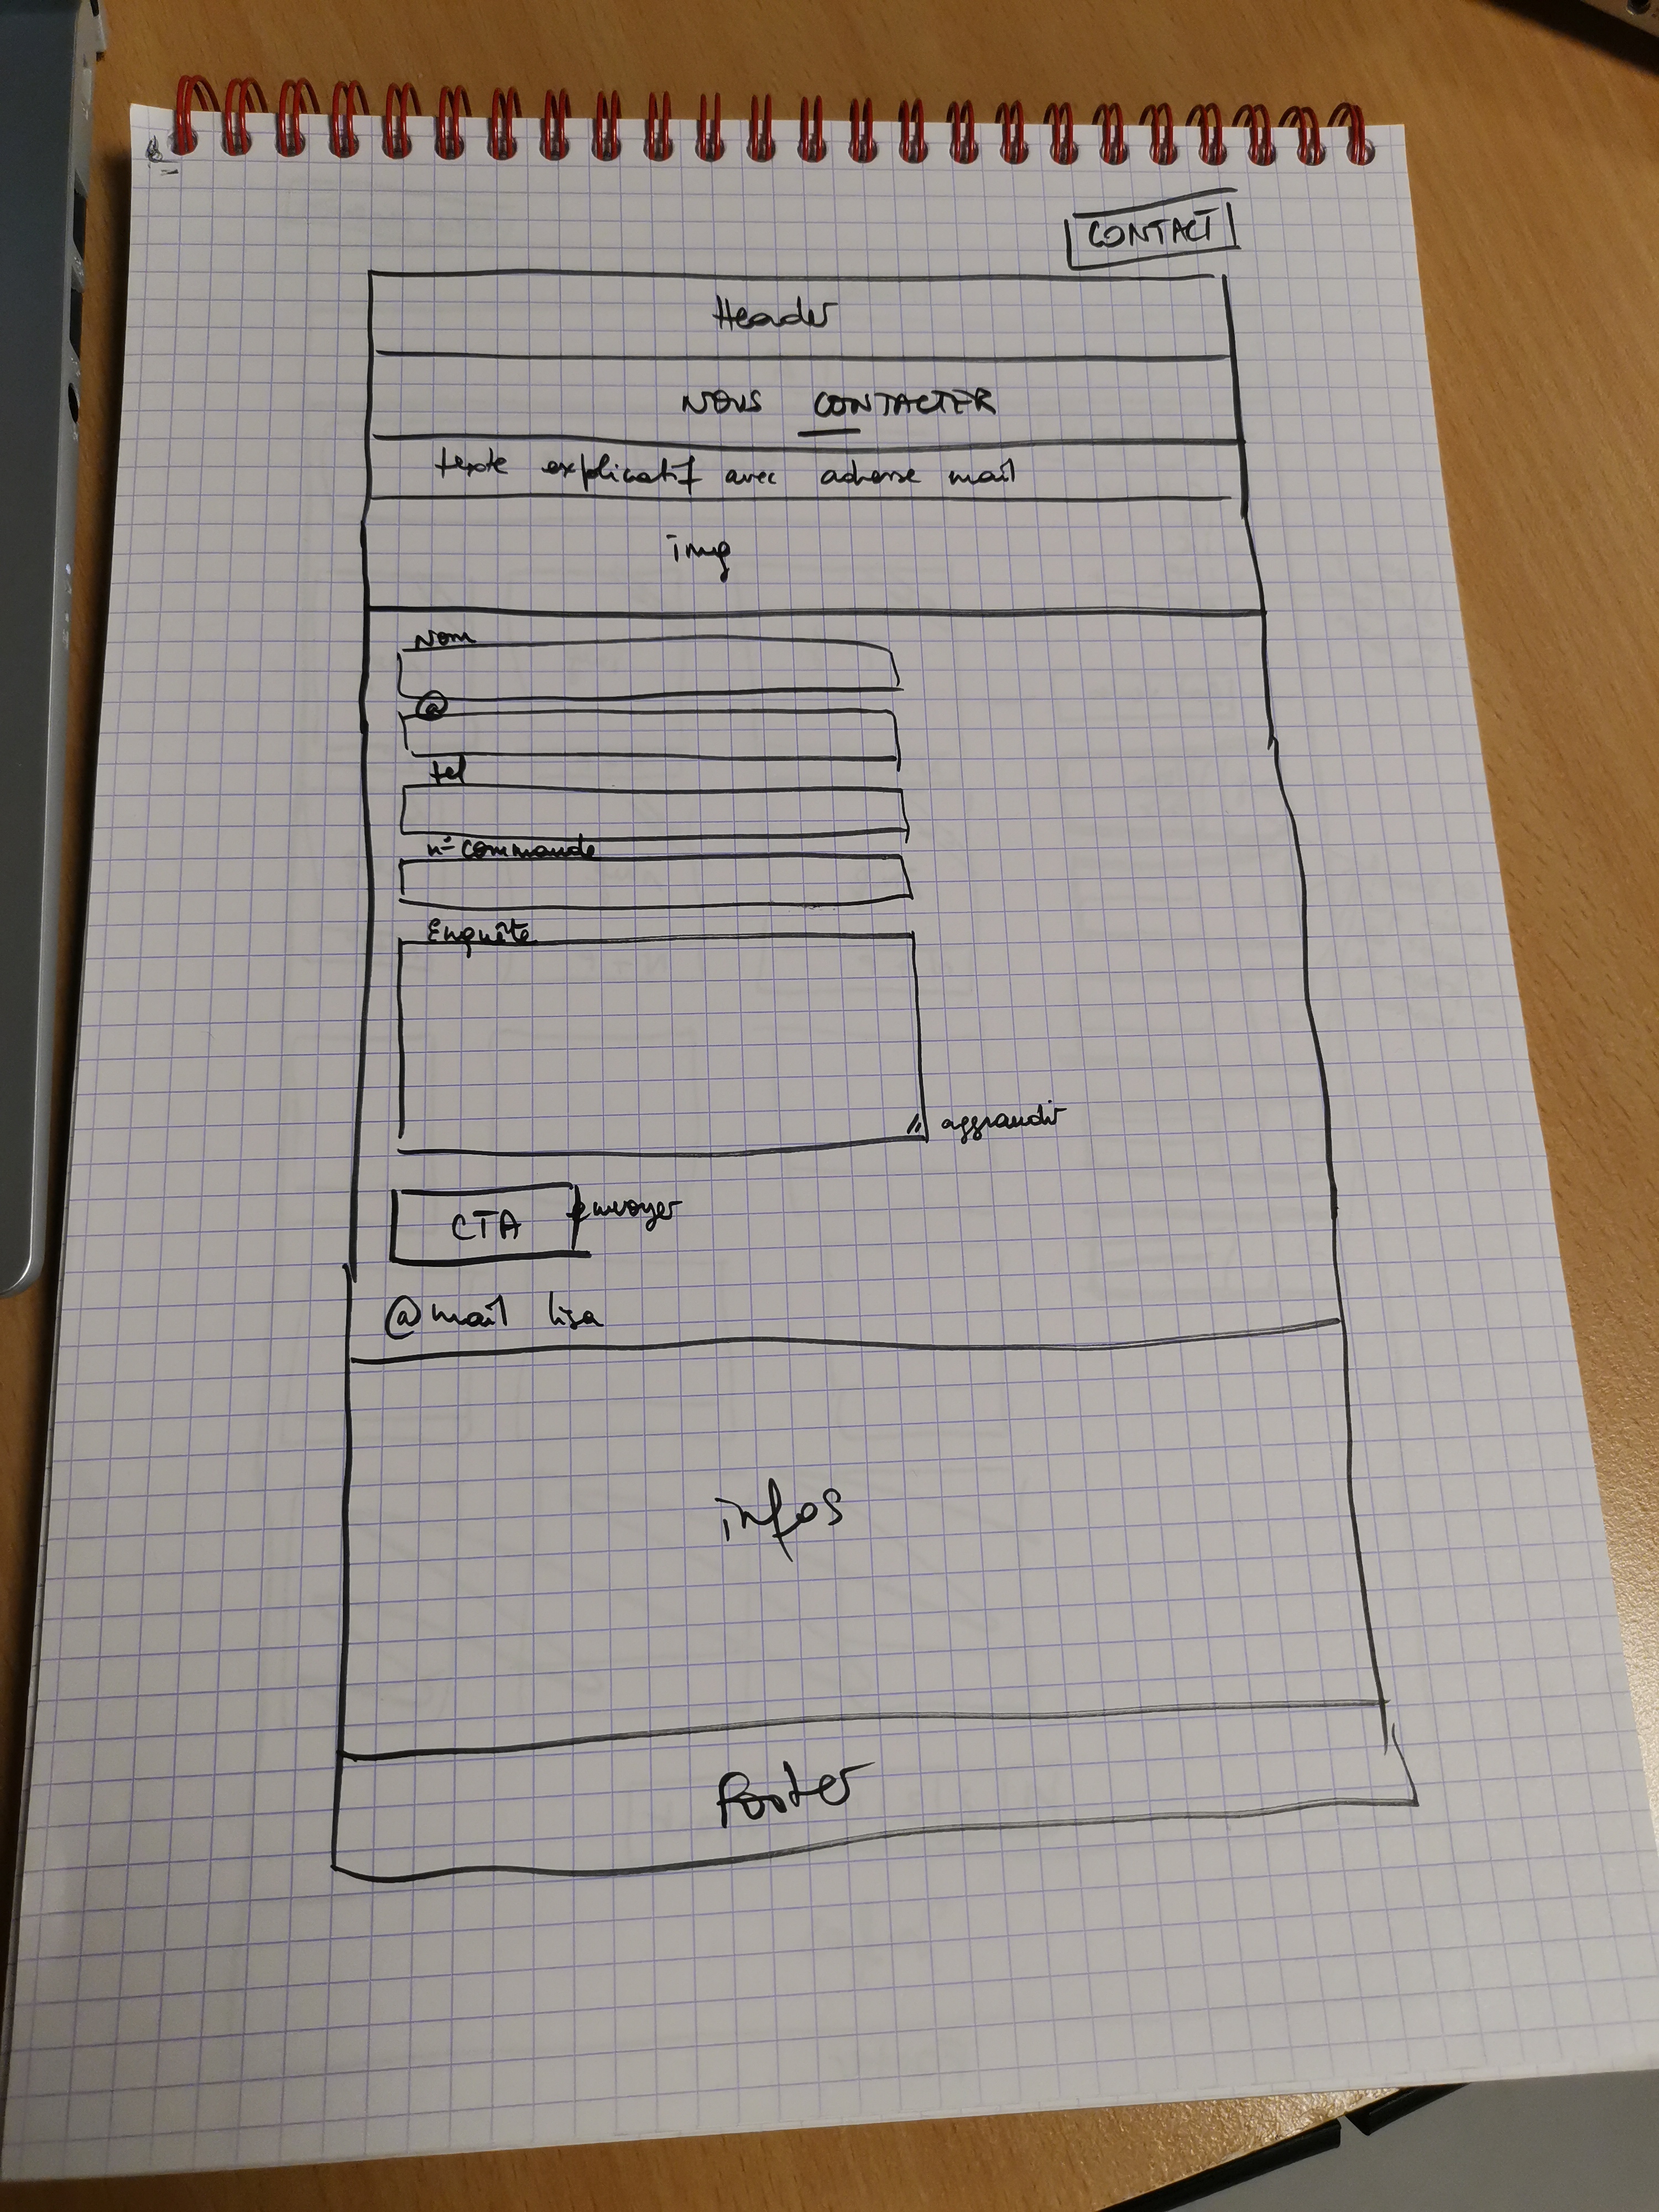 CONTACT
Header
NOUS CONTACTER
texte explicatif avec adresse mail
img
Nom
@
tel
n° commande
Enquête
aggrandir
CTA envoyer
@mail lisa
infos
Footer